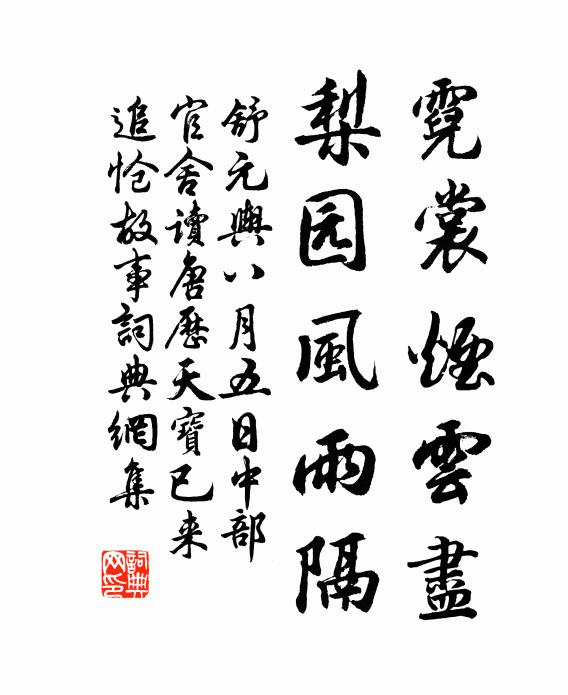 霓裳煙雲盡
梨园風雨隔
舒元輿八月五日中部
官舍讀唐歷天寶已来
追怆故事詞典網集
詞典网印